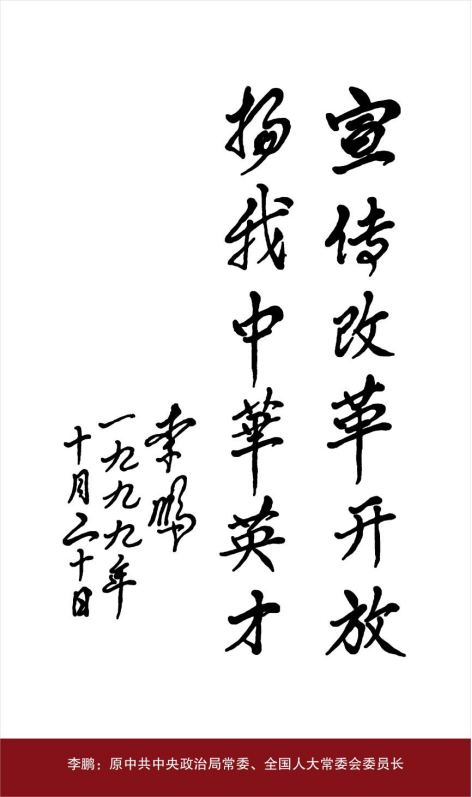 宣传改革开放
扬我中華英才
李鹏
一九九九年
十月二十日
李鹏：原中共中央政治局常委、全国人大常委会委员长